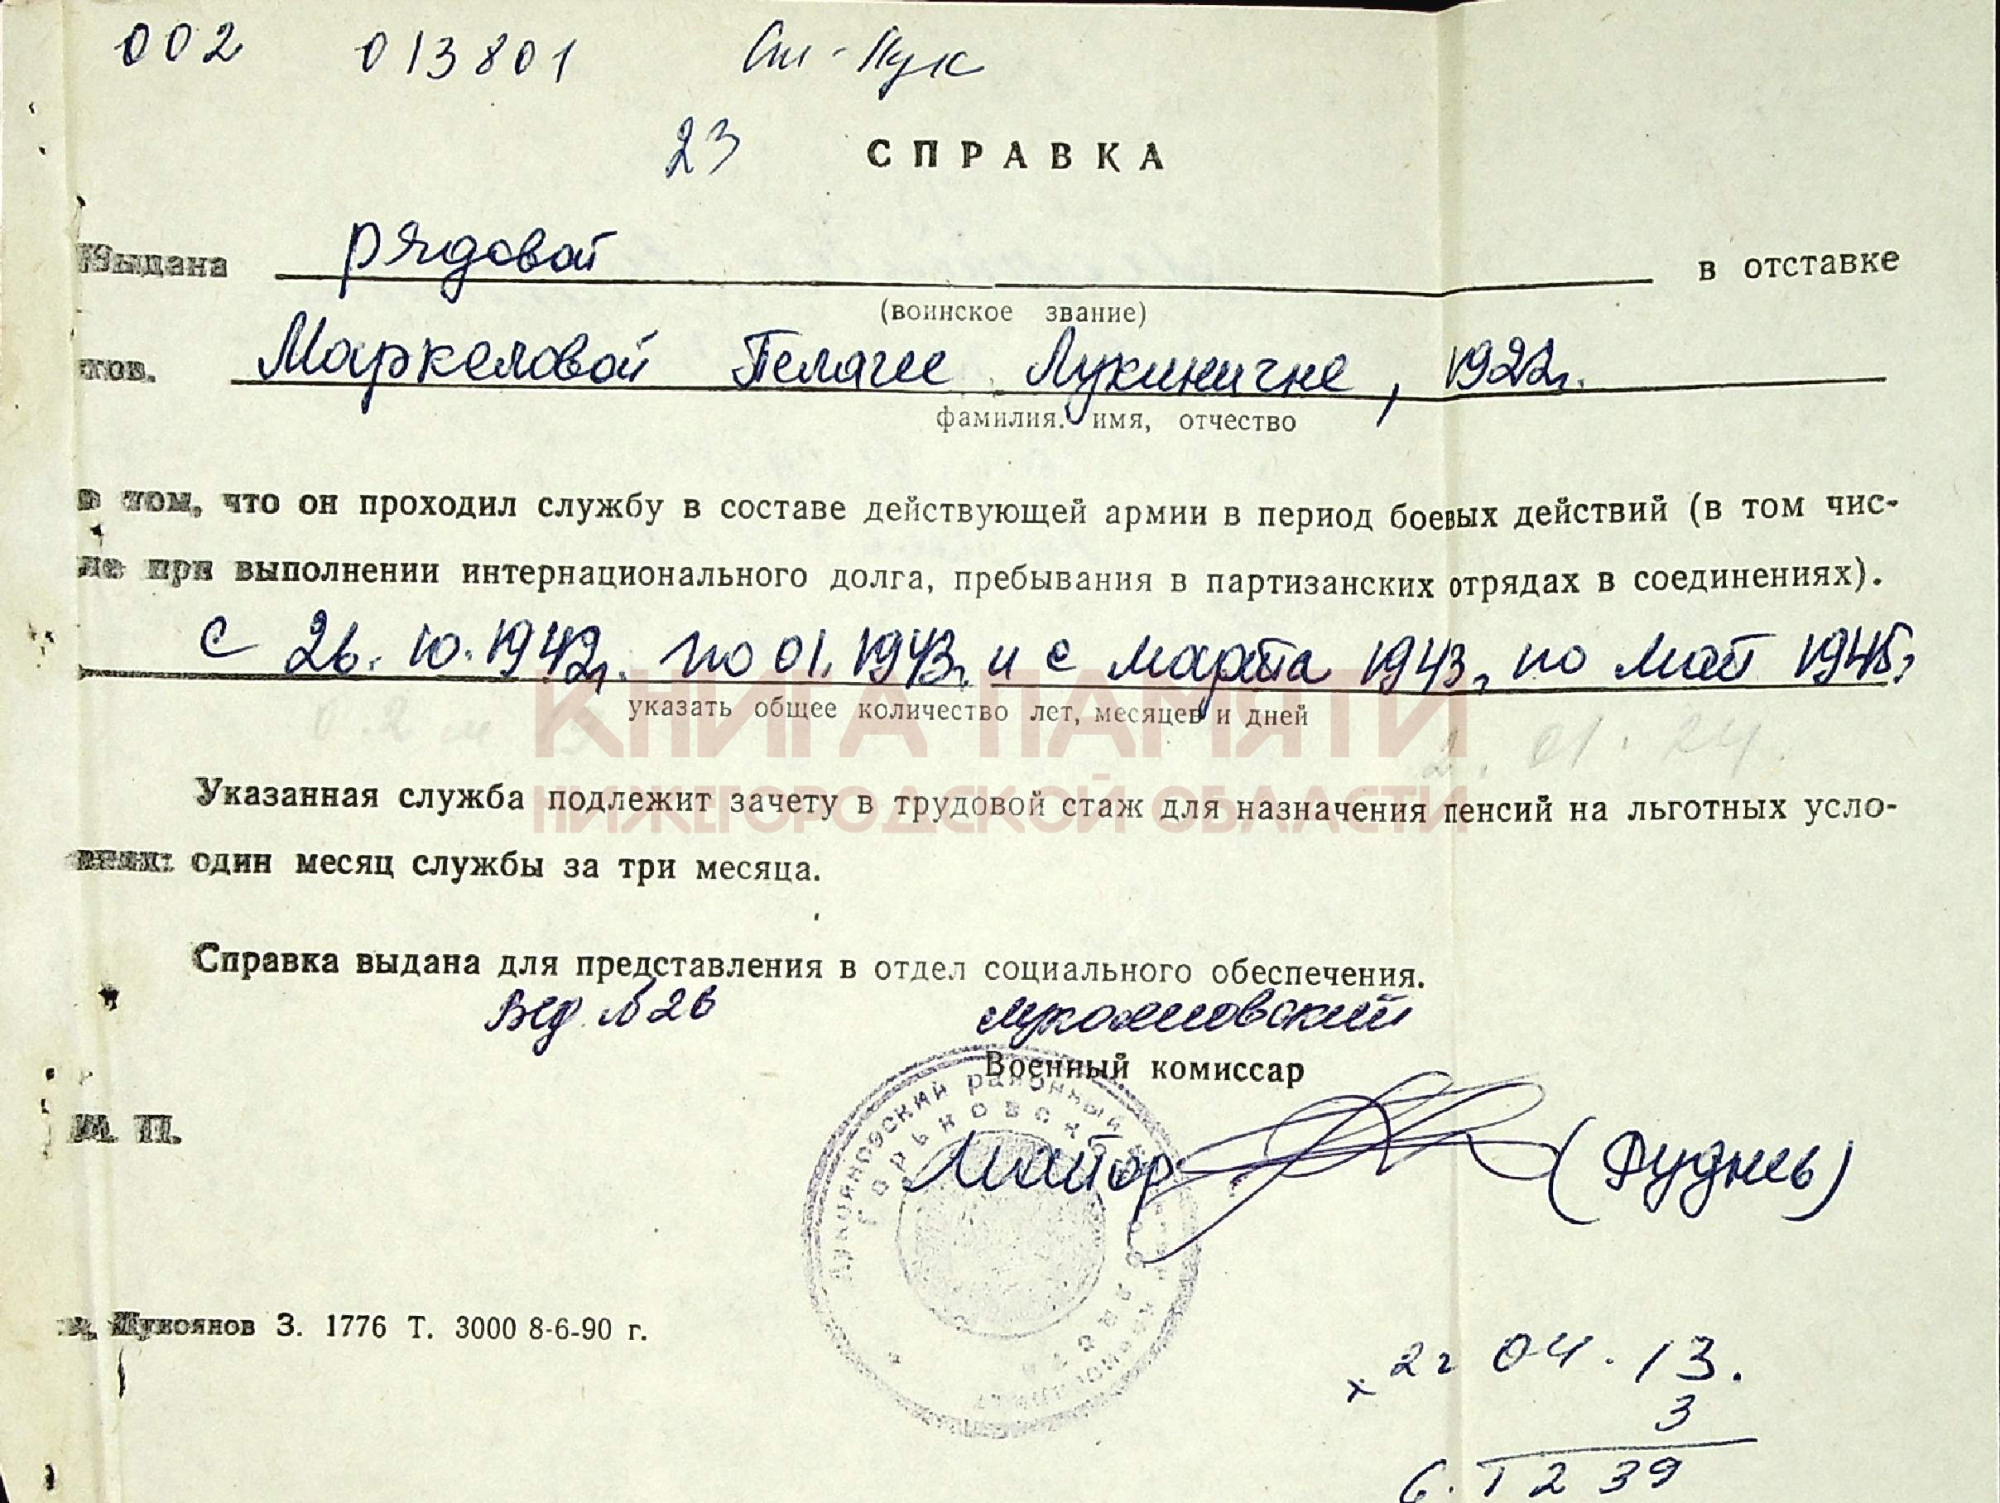 002 013801
23 СПРАВКА
Выдана рядовой в отставке
(воинское звание)
тов. Маркеловой Пелагее Лукиничне, 1922г.
фамилия. имя, отчество
в том, что он проходил службу в составе действующей армии в период боевых действий (в том чис-
ле при выполнении интернационального долга, пребывания в партизанских отрядах в соединениях).
с 26.10.1942г. по 01.1943г. и с марта 1943г. по май 1945г.
КНИГА ПАМЯТИ
указать общее количество лет, месяцев и дней
2. 01. 24.
Указанная служба подлежит зачету в трудовой стаж для назначения пенсий на льготных усло-
НИЖЕГОРОДСКОЙ ОБЛАСТИ
виях: один месяц службы за три месяца.
Справка выдана для представления в отдел социального обеспечения.
Вед. №26 Лукояновский
Военный комиссар
М. П.
Майор (Руднев)
Лукояновский районный
Горьковской
г. Лукоянов З. 1776 Т. 3000 8-6-90 г.
х 2г 04. 13.
3